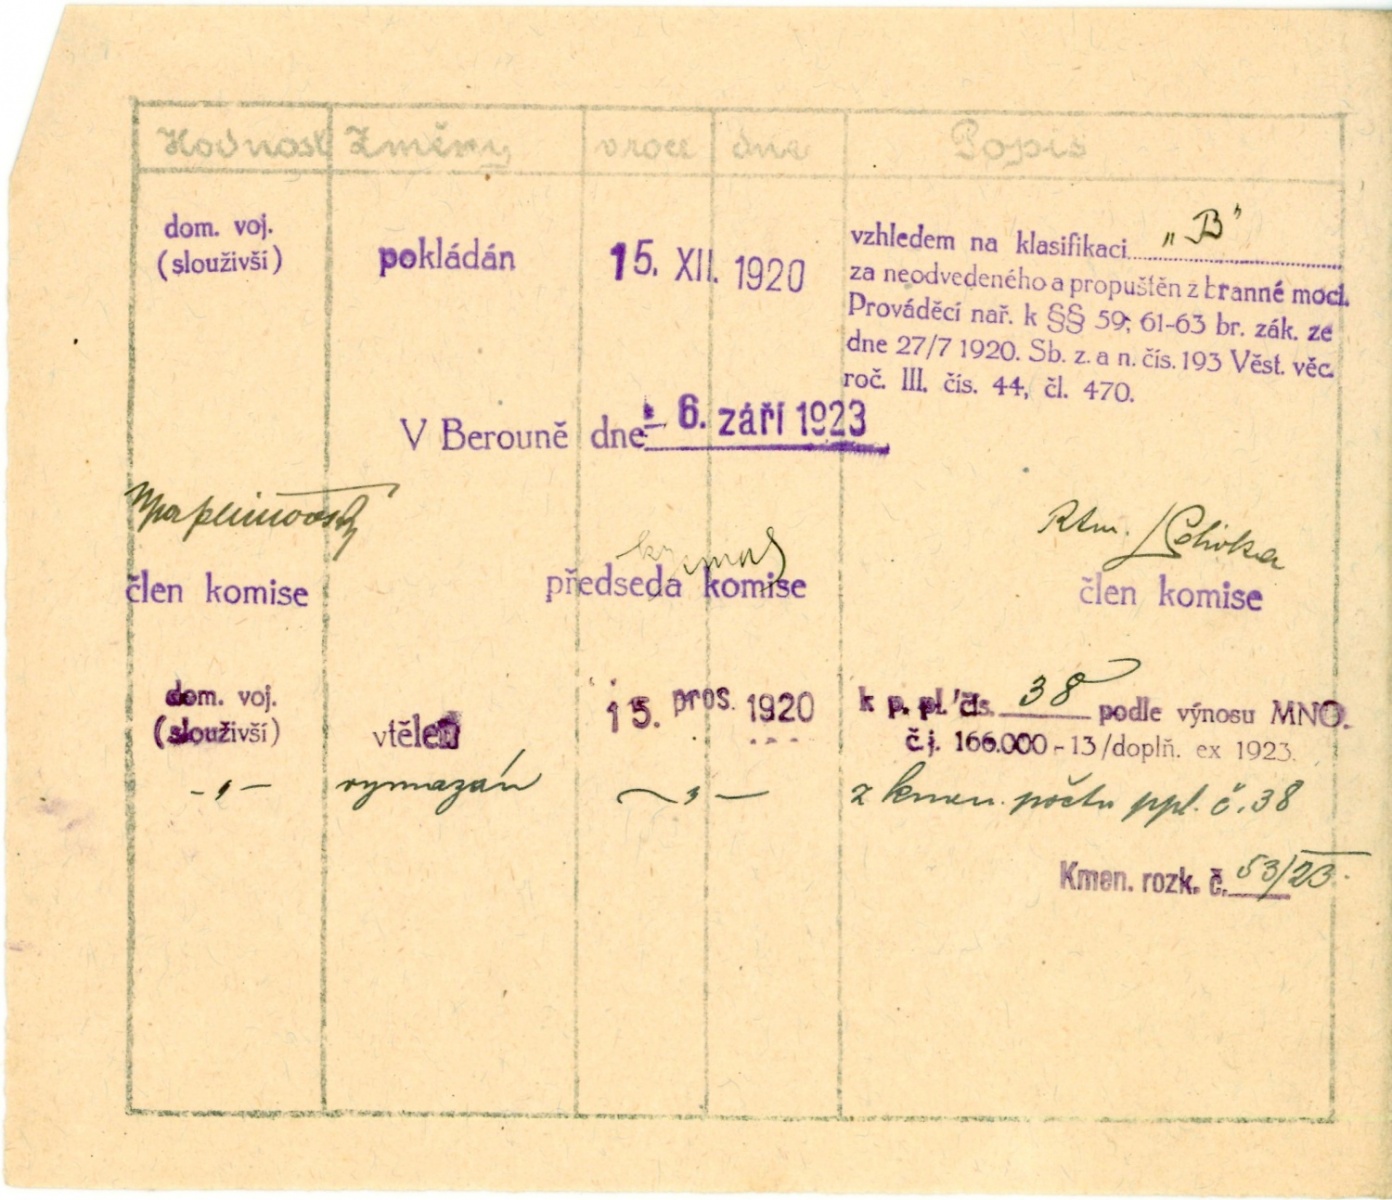 Hodnost Změny v roce dne Popis
dom. voj.
(slouživší)
pokládán
15. XII. 1920
vzhledem na klasifikaci „B"
za neodvedeného a propuštěn z branné moci.
Prováděcí nař. k §§ 59; 61-63 br. zák. ze
dne 27/7 1920. Sb. z. a n. čís. 193 Věst. věc.
roč. III. čís. 44, čl. 470.
V Berouně dne - 6. září 1923
Rtm.
člen komise předseda komise člen komise
dom. voj.
(slouživší)
vtělen
15. pros. 1920
k p. pl. čís. 38 podle výnosu MNO.
č. j. 166.000-13/doplň. ex 1923.
-„- vymazán -„- z kmen. počtu ppl. č. 38
Kmen. rozk. č. 53/23.